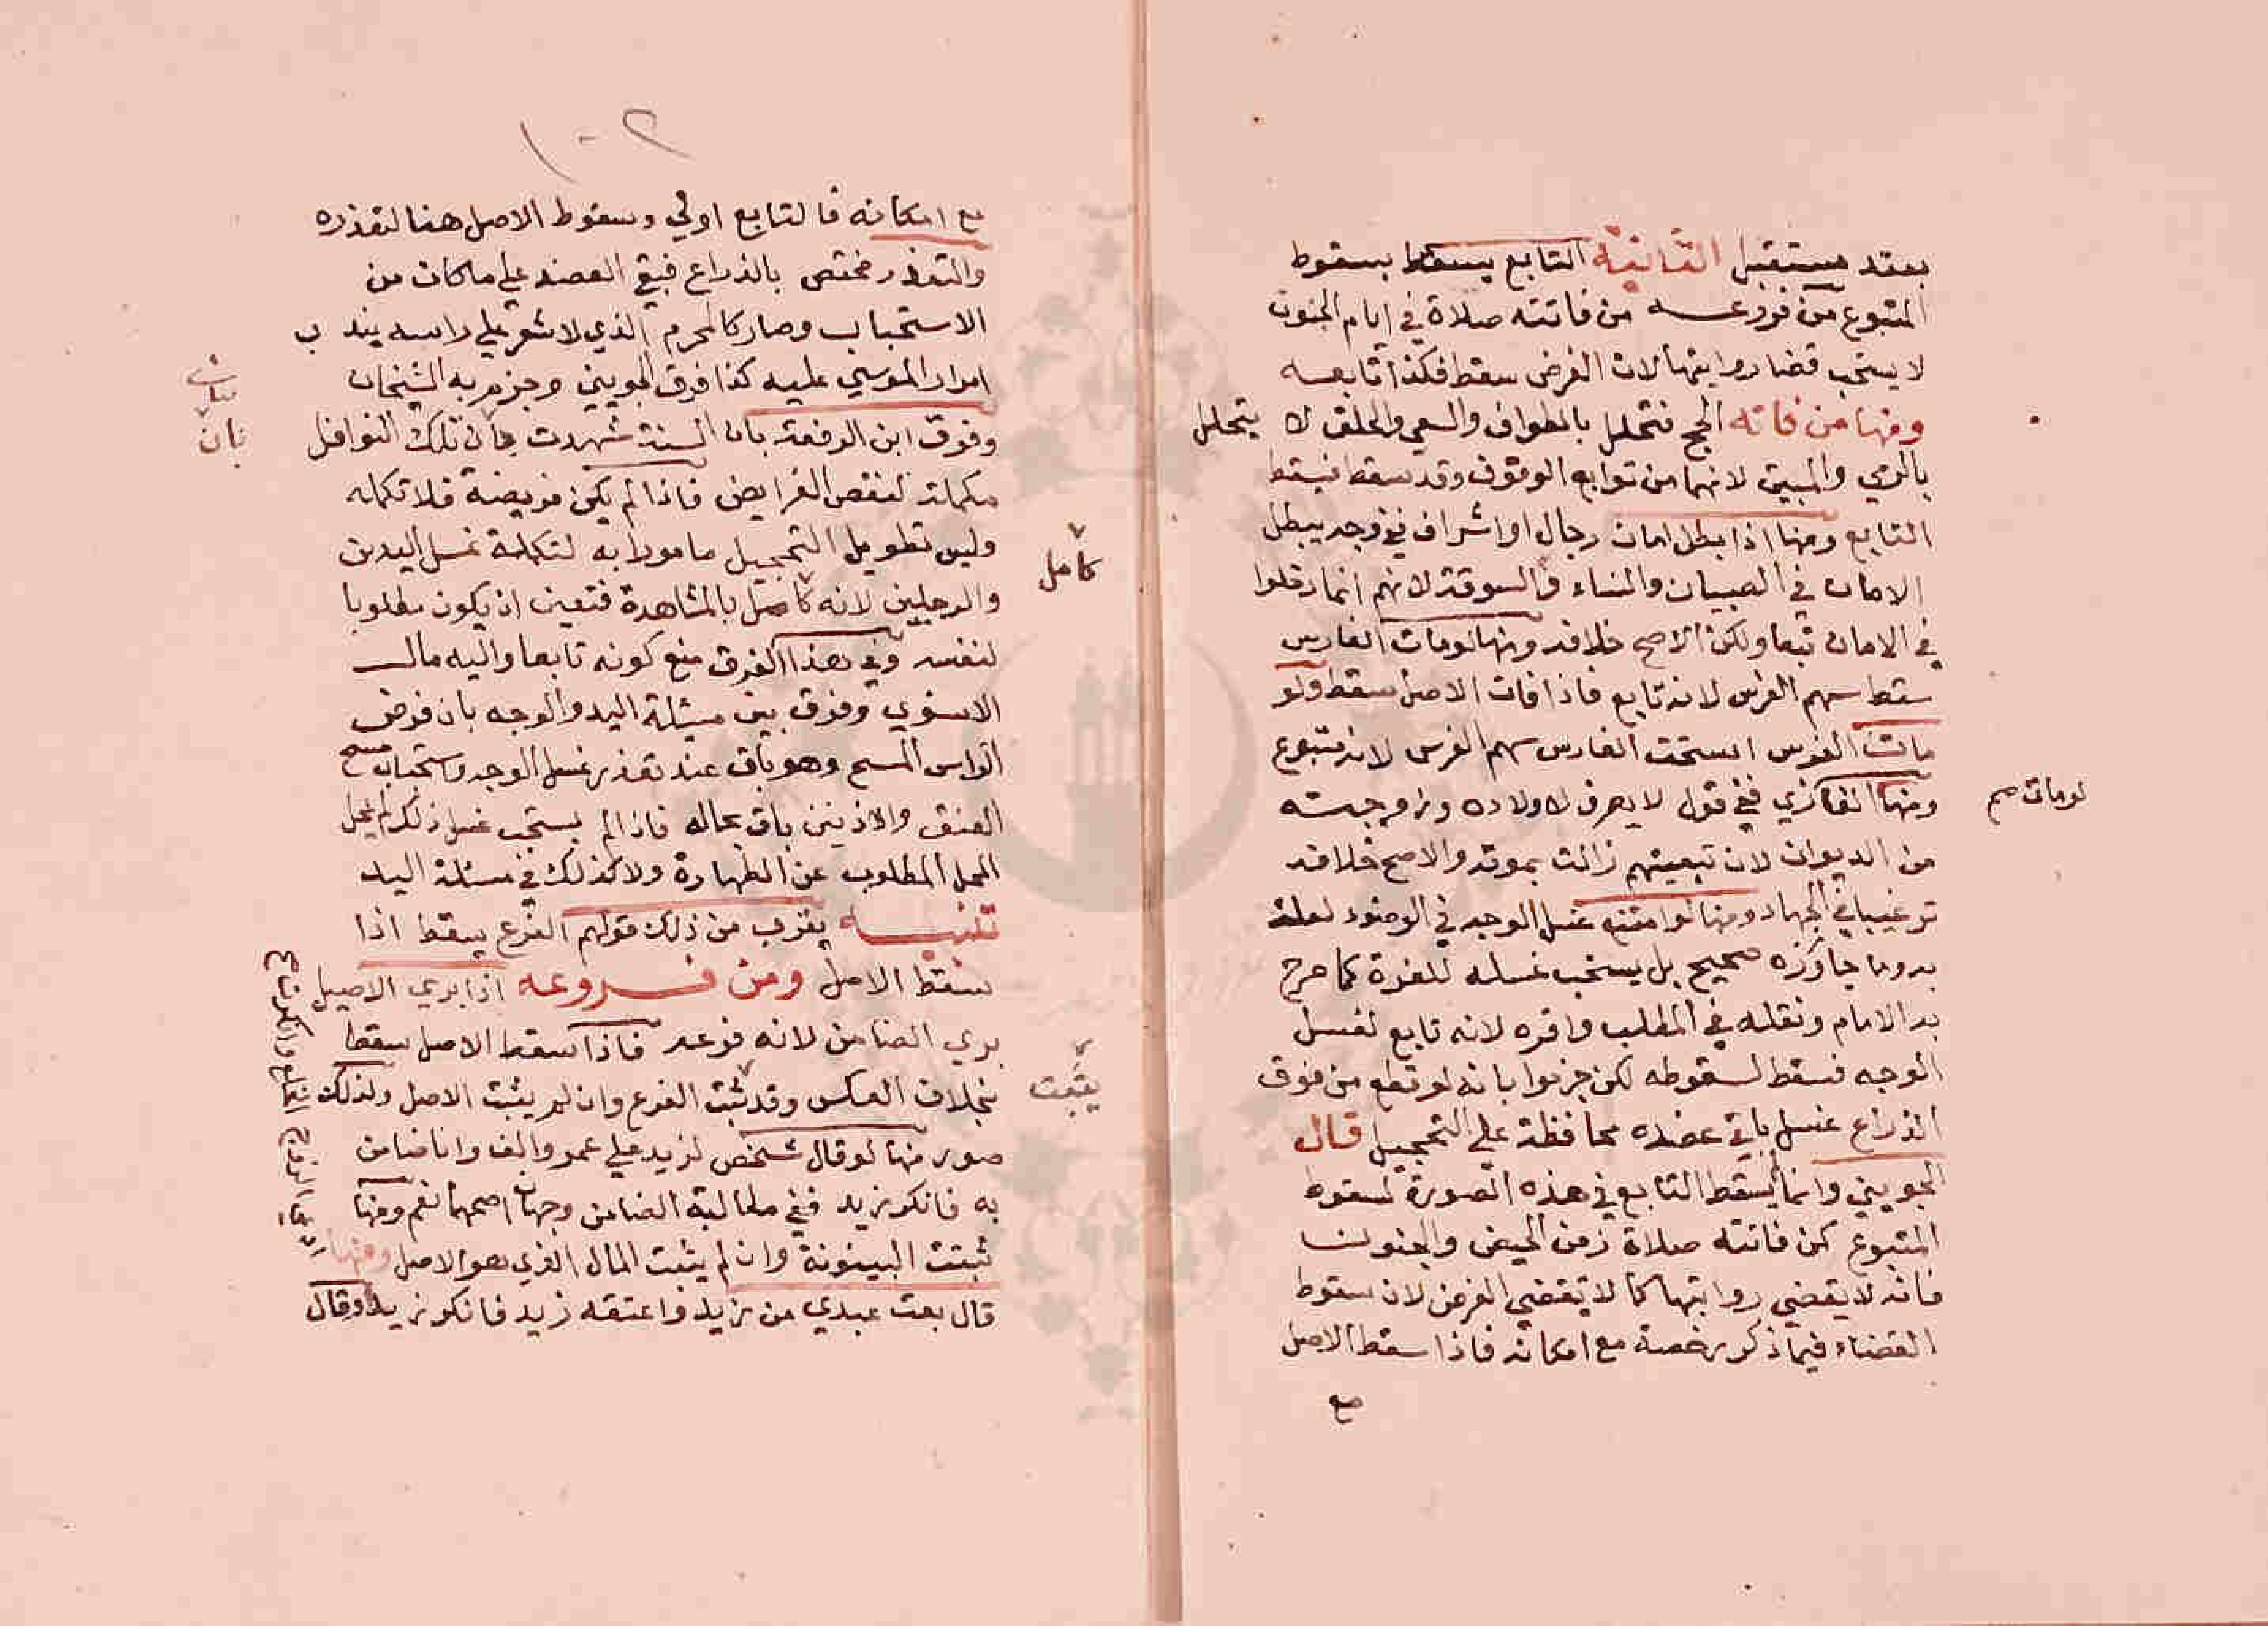 بعقد مستقبل الثانية التابع يسقط بسقوط
المتبوع من فروعه من فاتته صلاة في ايام الجنون
لا يستحب قضا رواتبها لان الفرض سقط فكذا تابعه
ومنها من فاته الحج فتحلل بالطواف والسعي والحلق لا يتحلل
بالرمي والمبيت لانهما من توابع الوقوف وقد سقط فيسقط
التابع ومنها اذا بطل امان رجال او اشراف ففي وجه يبطل
الامان في الصبيان والنساء والسوقة لانهم انما دخلوا
في الامان تبعا ولكن الاصح خلافه ومنها لو مات الفارس
سقط سهم الفرس لانه تابع فاذا فات الاصل سقط ولو
مات الفرس استحق الفارس سهم الفرس لانه متبوع
ومنها الغازي ففي قول لا يصرف لاولاده وزوجته
لو مات صح
من الديوان لان تبعيتهم زالت بموته والاصح خلافه
ترغيبا في الجهاد ومنها لو امتنع غسل الوجه في الوضوء لعلة
به وما جاوزه صحيح بل يستحب غسله للغرة كما صرح
به الامام ونقله في المطلب واقره لانه تابع لغسل
الوجه فسقط لسقوطه لكن جزموا بانه لو قطع من فوق
الذراع غسل باقي عضده محافظة على التحجيل قال
الجويني وانما لم يسقط التابع في هذه الصورة لسقوط
المتبوع كمن فاتته صلاة زمن الحيض والجنون
فانه لا يقضي رواتبها كما لا يقضي الفرض لان سقوط
القضاء فيما ذكر رخصة مع امكانه فاذا سقط الاصل
مع
١٠٢
مع امكانه فالتابع اولي وسقوط الاصل هنا لتعذره
والتعذر مختص بالذراع فبقي العضد على ما كان من
الاستحباب وصار كالمحرم الذي لا شعر على راسه يندب
امرار الموسي عليه كذا فرق الجويني وجزم به الشيخان
وفرق ابن الرفعة بان السنة شهدت بان تلك النوافل
بان
مكملة لنقص الفرايض فاذا لم يكن فريضة فلا تكملة
وليس تطويل التحجيل مامورا به لتكملة غسل اليدين
والرجلين لانه كامل بالمشاهدة فتعين ان يكون مطلوبا
كامل
لنفسه وفي هذا الفرق منع كونه تابعا واليه مال
الاسنوي وفرق بين مسئلة اليد والوجه بان فرض
الراس المسح وهو باق عند تعذر غسل الوجه واستحباب مسح
العنق والاذنين باق بحاله فاذا لم يستحب غسل ذلك لم يخل
المحل المطلوب عن الطهارة ولا كذلك في مسئلة اليد
تنبيه يقرب من ذلك قولهم الفرع يسقط اذا
سقط الاصل ومن فروعه اذا بري الاصيل
بري الضامن لانه فرعه فاذا سقط الاصل سقط
بخلاف العكس وقد يثبت الفرع وان لم يثبت الاصل ولذلك
يثبت
صور منها لو قال شخص لزيد على عمرو الف وانا ضامن
به فانكر زيد ففي مطالبة الضامن وجهان اصحهما نعم ومنها
ثبتت البينونة وان لم يثبت المال الذي هو الاصل ومنها
قال بعت عبدي من زيد فاعتقه زيد فانكر زيد او قال